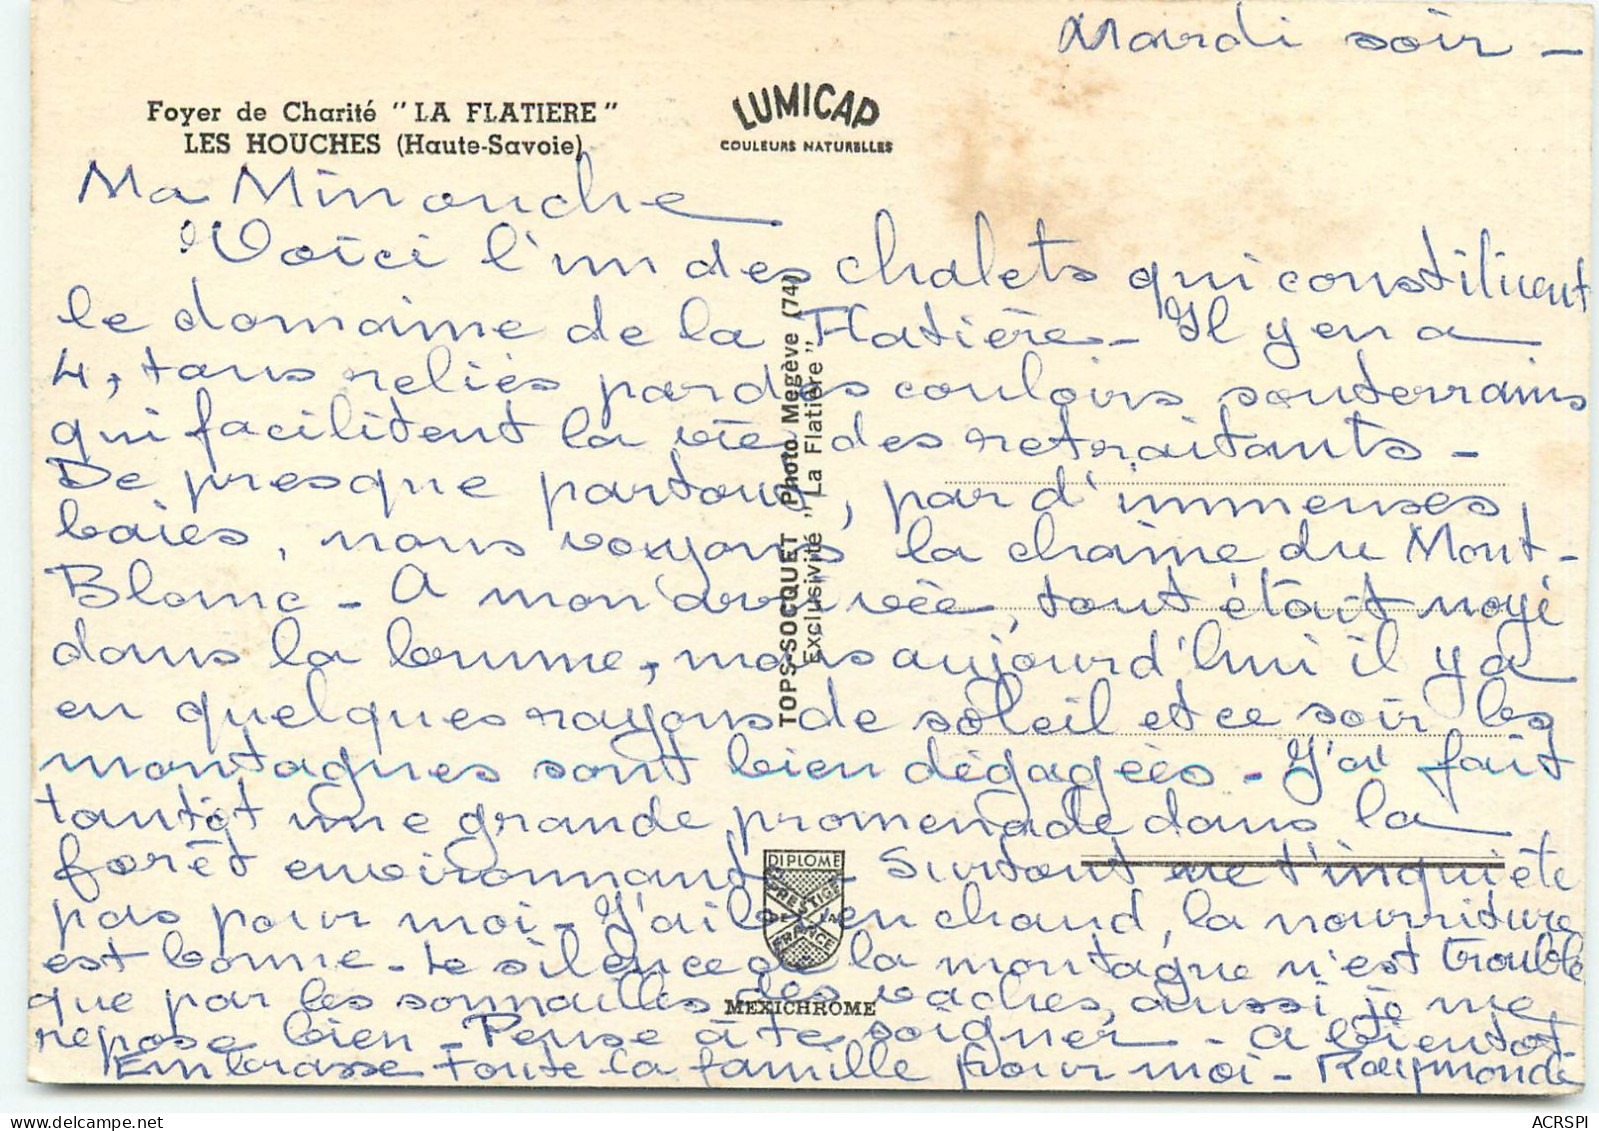 Mardi soir -
Foyer de Charité "LA FLATIERE"
LES HOUCHES (Haute-Savoie)
LUMICAP
COULEURS NATURELLES
Ma Minouche
Voici l'un des chalets qui constituent
le domaine de la Flatière - Il y en a
4, tous reliés par des couloirs souterrains
qui facilitent la vie des retraitants -
De presque partout, par d'immenses
baies, nous voyons la chaîne du Mont-
Blanc - A mon arrivée, tout était noyé
dans la brume, mais aujourd'hui il y a
eu quelques rayons de soleil et ce soir les
montagnes sont bien dégagées - J'ai fait
tantôt une grande promenade dans la
forêt environnante - Surtout ne t'inquiète
pas pour moi - J'ai bien chaud, la nourriture
est bonne - Le silence de la montagne n'est troublé
que par les sonnailles des vaches, aussi je me
repose bien - Pense à te soigner - A bientôt -
Embrasse toute la famille pour moi - Raymonde
TOPS-SOCQUET "Photo Megève (74)
Exclusivité "La Flatière"
DIPLOME
PRESTIGE
DE LA
FRANCE
MEXICHROME
ACRSPI